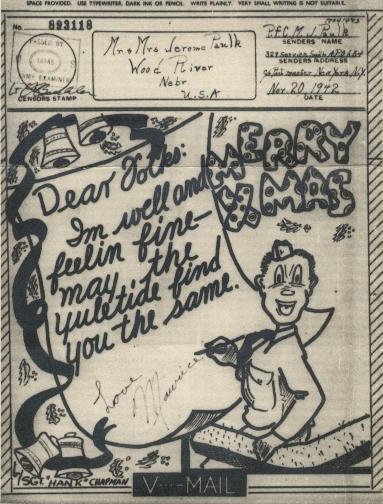 SPACE PROVIDED. USE TYPEWRITER, DARK INK OR PENCIL. WRITE PLAINLY. VERY SMALL WRITING IS NOT SUITABLE.
No. 893118
PASSED BY
ARMY EXAMINER
CENSORS STAMP
Mr & Mrs Jerome Paulk
Wood River
Nebr
U.S.A
P.F.C. M. J. Paulk
SENDERS NAME
SENDERS ADDRESS
Nov. 20, 1942
DATE
MERRY
XMAS
Dear Folks:
Im well and
feelin fine-
may the
yuletide find
you the same.
Love
Maurice
By SGT. "HANK" CHAPMAN
V···-MAIL